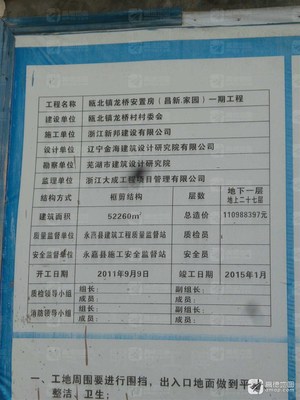 工程名称 瓯北镇龙桥安置房（昌新.家园）一期工程
建设单位 瓯北镇龙桥村村委会
施工单位 浙江新邦建设有限公司
设计单位 辽宁金海建筑设计研究院有限公司
勘察单位 芜湖市建筑设计研究院
监理单位 浙江大成工程项目管理有限公司
结构方式 框剪结构 层数 地下一层
地上二十七层
建筑面积 52260m² 总造价 110988397元
质量监督单位 永嘉县建筑工程质量监督站 质检员
安全监督单位 永嘉县施工安全监督站 安全员
开工日期 2011年9月9日 竣工日期 2015年1月
质检领导小组 组长： 副组长：
成员： 成员：
消防领导小组 组长： 副组长：
成员： 成员：
一、工地周围要进行围挡，出入口地面做到平
整洁、卫生；